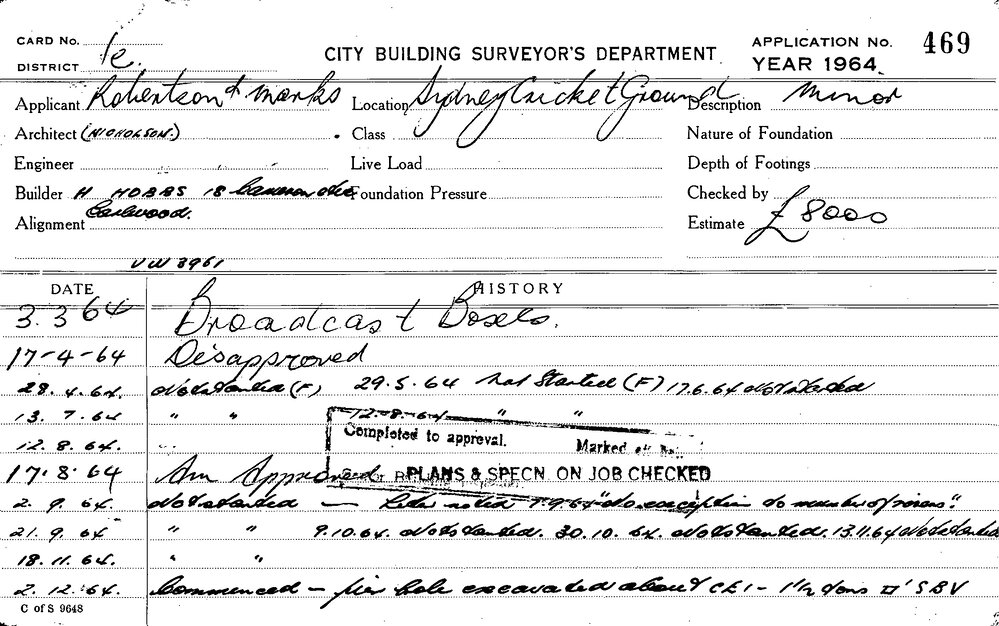 CARD No.
DISTRICT 1e.
CITY BUILDING SURVEYOR'S DEPARTMENT
APPLICATION No. 469
YEAR 1964
Applicant Robertson & Marks Location Sydney Cricket Ground Description Minor
Architect (NICHOLSON.) Class Nature of Foundation
Engineer Live Load Depth of Footings
Builder H HOBBS 18 Cameron Ave Foundation Pressure Checked by
Earlwood.
Alignment Estimate £8000
UW 3961
DATE HISTORY
3.3 64 Broadcast Boxes.
17-4-64 Disapproved
28.4.64. Not started (F) 29.5.64 Not Started (F) 17.6.64 Not started
13.7.64 " " 12-8-64 " "
Completed to approval. Marked off
12.8.64.
17.8.64 Approved PLANS & SPECN. ON JOB CHECKED
2.9.64. Not started — Letter noted 7.9.64 "No exception to number of risers".
21.9.64 " " 9.10.64. Not started. 30.10.64. Not started. 13.11.64 Not started
18.11.64. " "
2.12.64. Commenced — pier hole excavated about
C of S 9648